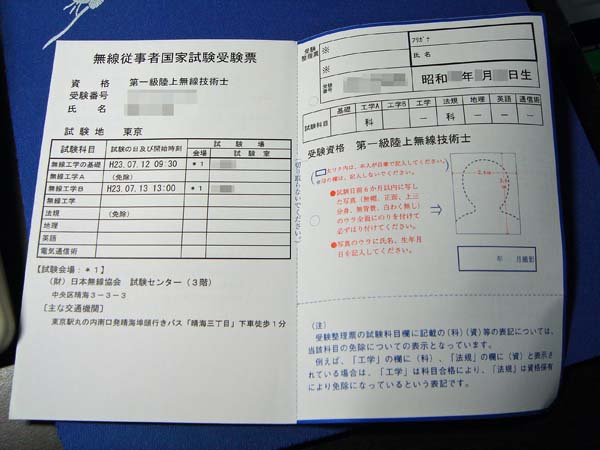 無線従事者国家試験受験票
資　　格　　第一級陸上無線技術士
受験番号
氏　　名
試　験　地　東京
試験科目　試験の日及び開始時刻　試　験　場
会場　試　験　室
無線工学の基礎　H23.07.12 09:30　＊1
無線工学A　（免除）
無線工学B　H23.07.13 13:00　＊1
無線工学
法規　（免除）
地理
英語
電気通信術
【試験会場：＊1】
（財）日本無線協会　試験センター（3階）
中央区晴海3－3－3
［主な交通機関］
東京駅丸の内南口発晴海埠頭行きバス「晴海三丁目」下車徒歩1分
受験整理票
※
※
フリガナ
氏　名
受験番号
昭和　年　月　日生
試験科目　基礎　工学A　工学B　工学　法規　地理　英語　通信術
－　科　－　科　－　－　－
受験資格　第一級陸上無線技術士
（太ワク内は、本人が自筆で記入してください。）
※印の欄は、記入しないでください。
●試験日前6か月以内に写した写真（無帽、正面、上三分身、無背景、白わく無し）のウラ全面にのりを付けて必ずはり付けてください。
●写真のウラに氏名、生年月日を記入してください。
⇒
年　月撮影
（注）
受験整理票の試験科目欄に記載の（科）（資）等の表記については、
当該科目の免除についての表示となっています。
例えば、「工学」の欄に（科）、「法規」の欄に（資）と表示さ
れている場合は、「工学」は科目合格により、「法規」は資格保有
により免除になっているという表記です。